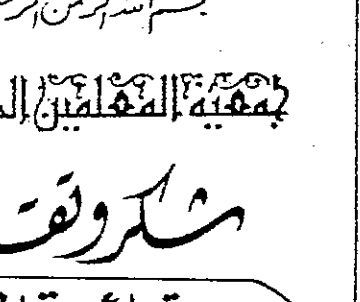 بسم الله الرحمن الر
جمعية المعلمين ال
شكر وتق